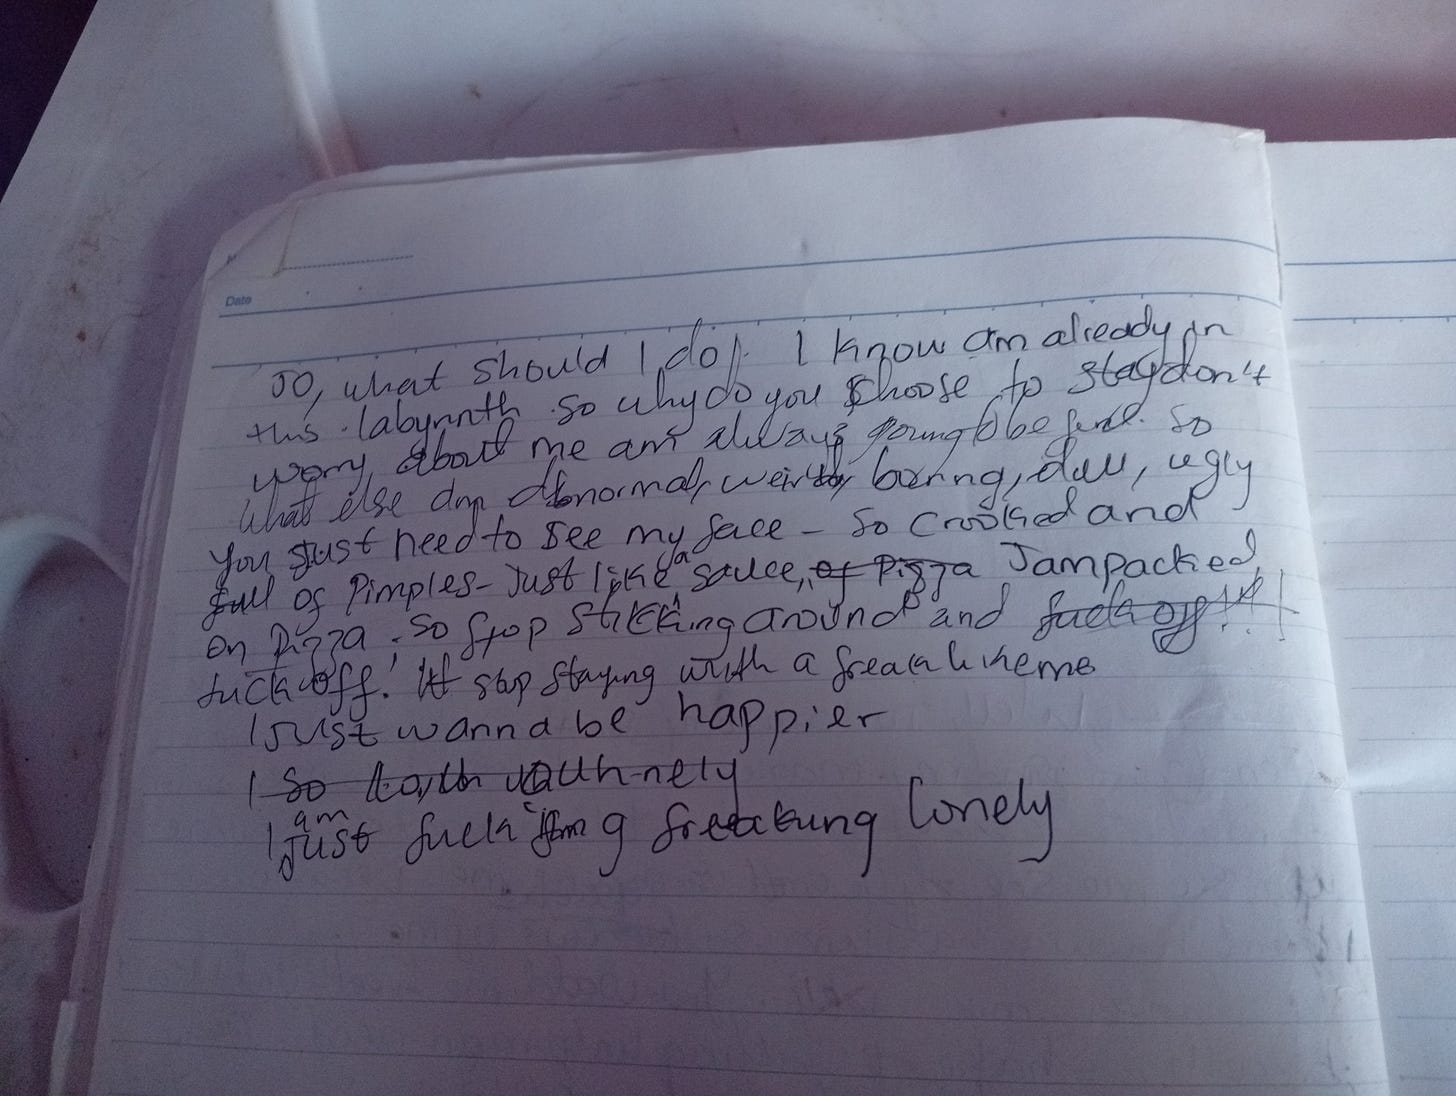 Date
So, what should I do. I know am already in
this labyrinth. so why do you choose to stay don't
worry about me am always going to be fine. So
what else am abnormal, weird, boring, dull, ugly
You just need to see my face - so crooked and
full of Pimples - Just like a sauce, of Pizza Jampacked
on Pizza. So stop sticking around and fuck off!!!
fuck off! stop staying with a freak like me
I Just wanna be happier
I so
I am just fucking freaking lonely